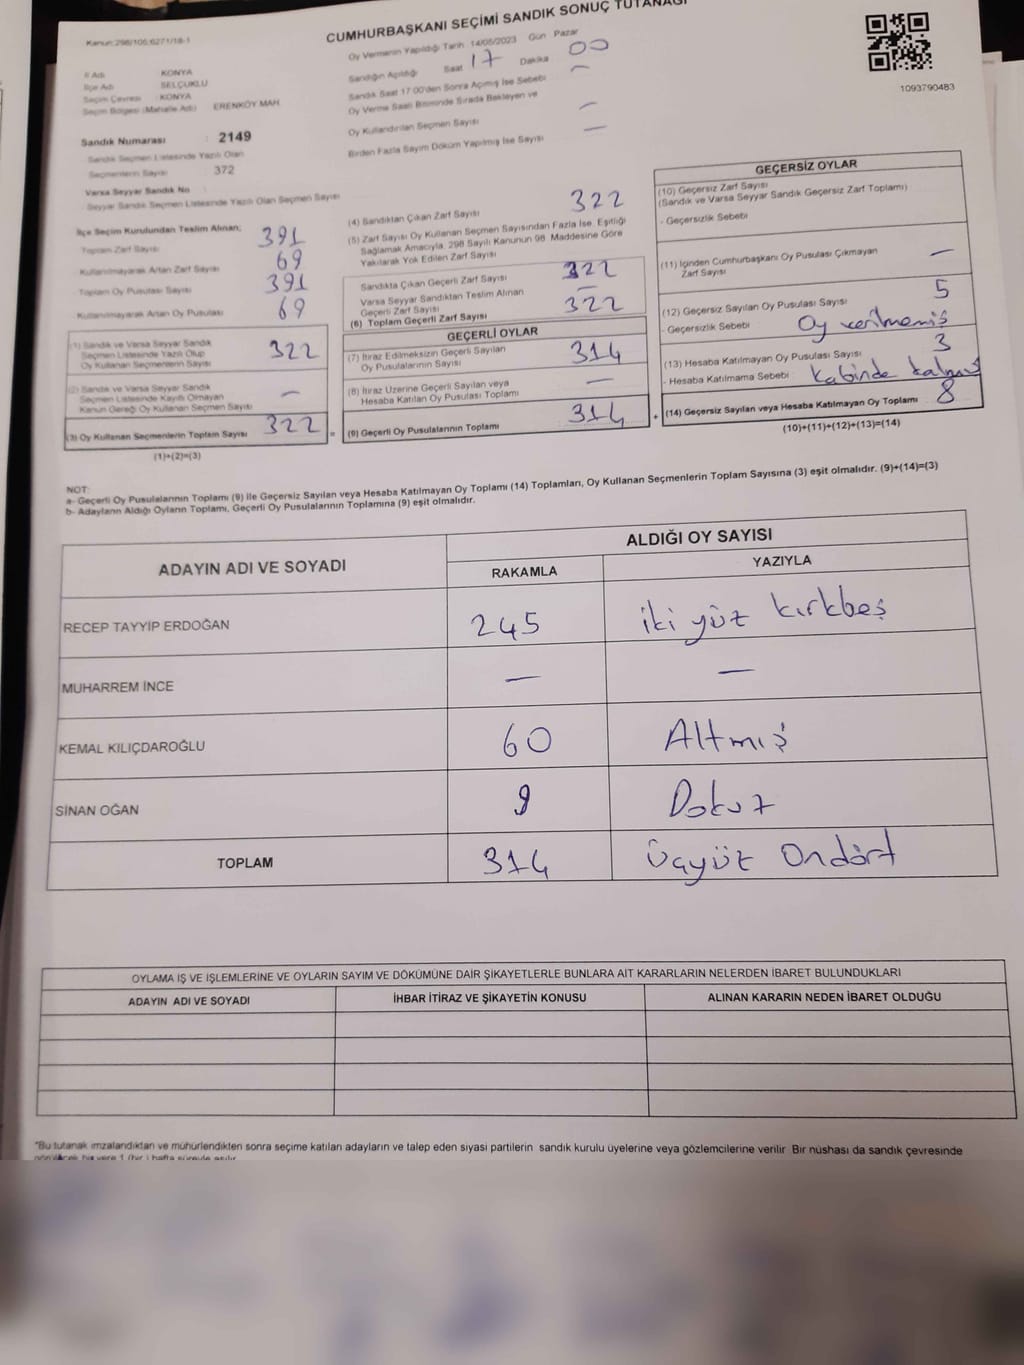 CUMHURBAŞKANI SEÇİMİ SANDIK SONUÇ TUTANAĞI
Kanun:298/105;6271/18-1
Oy Vermenin Yapıldığı Tarih 14/05/2023 Gün Pazar
İl Adı KONYA
İlçe Adı SELÇUKLU
Seçim Çevresi : KONYA
Seçim Bölgesi (Mahalle Adı) ERENKÖY MAH.
Sandık Numarası : 2149
Sandık Seçmen Listesinde Yazılı Olan
Seçmenlerin Sayısı : 372
Varsa Seyyar Sandık No :
Seyyar Sandık Seçmen Listesinde Yazılı Olan Seçmen Sayısı
Sandığın Açıldığı Saat 17 Dakika 00
Sandık Saat 17.00'den Sonra Açılmış İse Sebebi —
Oy Verme Saati Bitiminde Sırada Bekleyen ve
Oy Kullandırılan Seçmen Sayısı —
Birden Fazla Sayım Döküm Yapılmış İse Sayısı —
1093790483
İlçe Seçim Kurulundan Teslim Alınan;
Toplam Zarf Sayısı 391
Kullanılmayarak Artan Zarf Sayısı 69
Toplam Oy Pusulası Sayısı 391
Kullanılmayarak Artan Oy Pusulası 69
(1) Sandık ve Varsa Seyyar Sandık
Seçmen Listesinde Yazılı Olup
Oy Kullanan Seçmenlerin Sayısı 322
(2) Sandık ve Varsa Seyyar Sandık
Seçmen Listesinde Kayıtlı Olmayan
Kanun Gereği Oy Kullanan Seçmen Sayısı —
(3) Oy Kullanan Seçmenlerin Toplam Sayısı 322 =
(1)+(2)=(3)
(4) Sandıktan Çıkan Zarf Sayısı 322
(5) Zarf Sayısı Oy Kullanan Seçmen Sayısından Fazla İse, Eşitliği
Sağlamak Amacıyla, 298 Sayılı Kanunun 98. Maddesine Göre
Yakılarak Yok Edilen Zarf Sayısı
Sandıkta Çıkan Geçerli Zarf Sayısı 322
Varsa Seyyar Sandıktan Teslim Alınan
Geçerli Zarf Sayısı —
(6) Toplam Geçerli Zarf Sayısı 322
GEÇERLİ OYLAR
(7) İtiraz Edilmeksizin Geçerli Sayılan
Oy Pusulalarının Sayısı 314
(8) İtiraz Üzerine Geçerli Sayılan veya
Hesaba Katılan Oy Pusulası Toplamı —
(9) Geçerli Oy Pusulalarının Toplamı 314 +
GEÇERSİZ OYLAR
(10) Geçersiz Zarf Sayısı
(Sandık ve Varsa Seyyar Sandık Geçersiz Zarf Toplamı)
- Geçersizlik Sebebi
(11) İçinden Cumhurbaşkanı Oy Pusulası Çıkmayan
Zarf Sayısı —
(12) Geçersiz Sayılan Oy Pusulası Sayısı 5
- Geçersizlik Sebebi : Oy verilmemiş
(13) Hesaba Katılmayan Oy Pusulası Sayısı 3
- Hesaba Katılmama Sebebi : Kabinde kalmış
(14) Geçersiz Sayılan veya Hesaba Katılmayan Oy Toplamı 8
(10)+(11)+(12)+(13)=(14)
NOT:
a- Geçerli Oy Pusulalarının Toplamı (9) ile Geçersiz Sayılan veya Hesaba Katılmayan Oy Toplamı (14) Toplamları, Oy Kullanan Seçmenlerin Toplam Sayısına (3) eşit olmalıdır. (9)+(14)=(3)
b- Adayların Aldığı Oyların Toplamı, Geçerli Oy Pusulalarının Toplamına (9) eşit olmalıdır.
ADAYIN ADI VE SOYADI ALDIĞI OY SAYISI
RAKAMLA YAZIYLA
RECEP TAYYİP ERDOĞAN 245 İki yüz kırkbeş
MUHARREM İNCE — —
KEMAL KILIÇDAROĞLU 60 Altmış
SİNAN OĞAN 9 Dokuz
TOPLAM 314 Üçyüz Ondört
OYLAMA İŞ VE İŞLEMLERİNE VE OYLARIN SAYIM VE DÖKÜMÜNE DAİR ŞİKAYETLERLE BUNLARA AİT KARARLARIN NELERDEN İBARET BULUNDUKLARI
ADAYIN ADI VE SOYADI İHBAR İTİRAZ VE ŞİKAYETİN KONUSU ALINAN KARARIN NEDEN İBARET OLDUĞU
*Bu tutanak imzalandıktan ve mühürlendikten sonra seçime katılan adayların ve talep eden siyasi partilerin sandık kurulu üyelerine veya gözlemcilerine verilir. Bir nüshası da sandık çevresinde